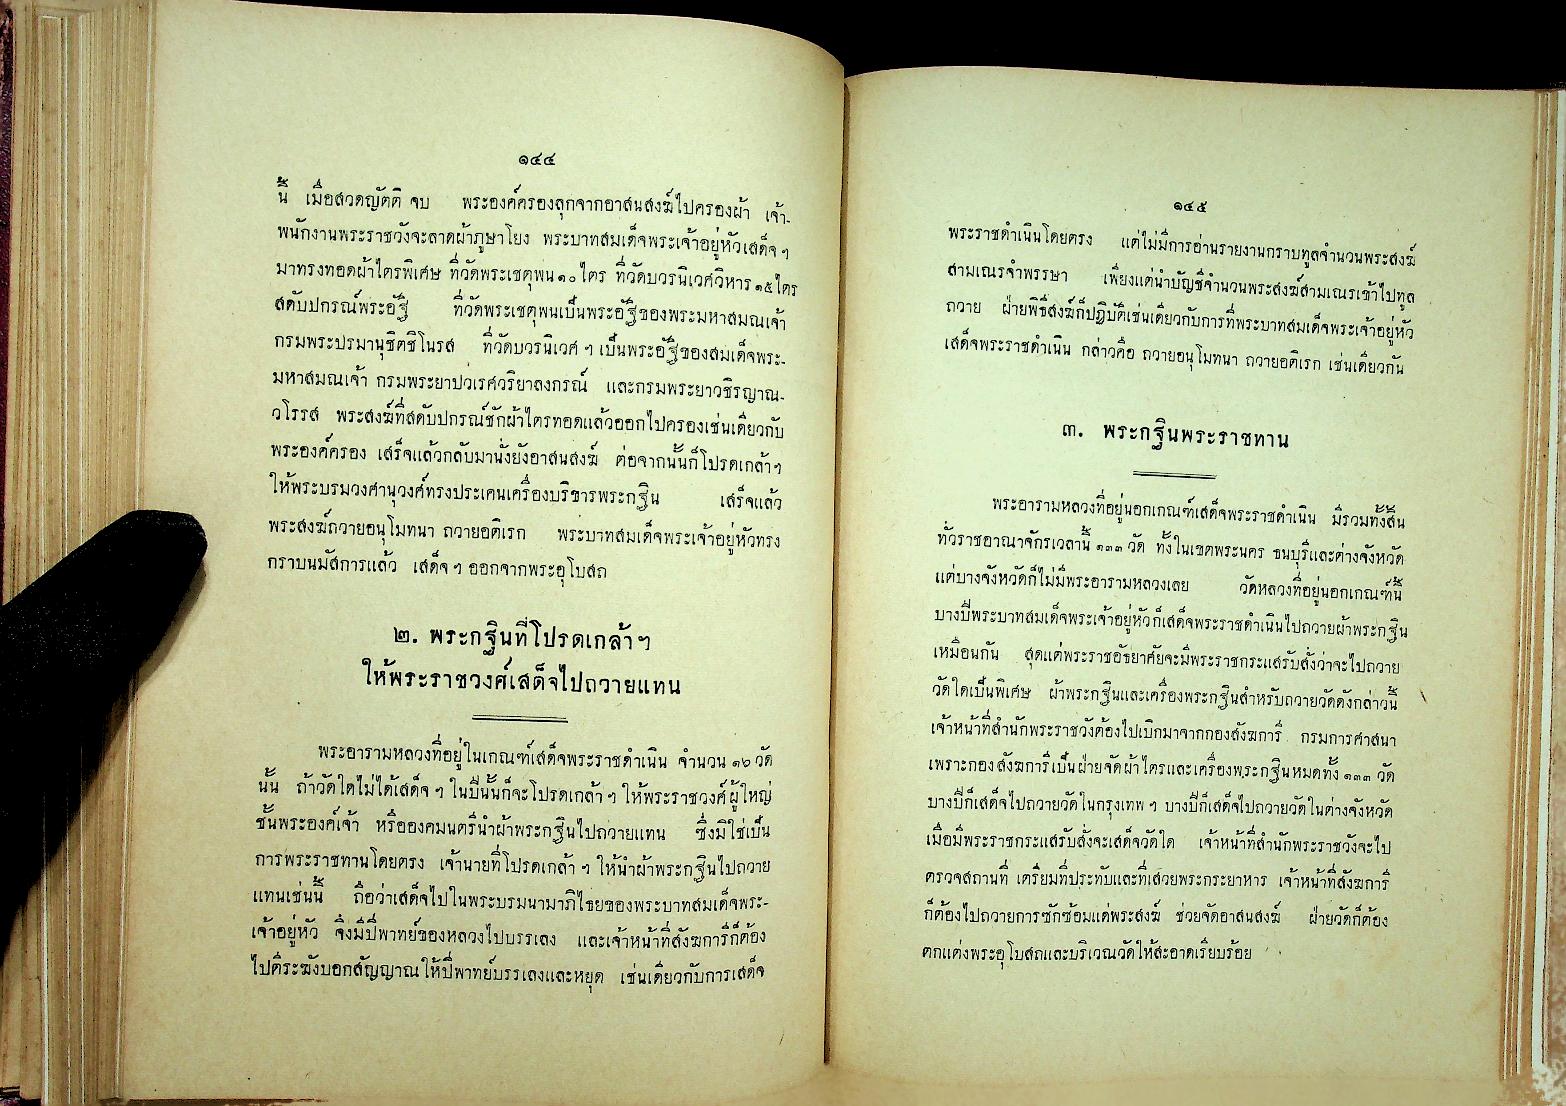 ๑๔๔
นี้ เมื่อสวดญัตติ จบ พระองค์ครองลุกจากอาสนสงฆ์ไปครองผ้า เจ้า-
พนักงานพระราชวังจะลาดผ้าภูษาโยง พระบาทสมเด็จพระเจ้าอยู่หัวเสด็จ ฯ
มาทรงทอดผ้าไตรพิเศษ ที่วัดพระเชตุพน ๑๐ ไตร ที่วัดบวรนิเวศวิหาร ๑๕ ไตร
สดับปกรณ์พระอัฐิ ที่วัดพระเชตุพนเป็นพระอัฐิของพระมหาสมณเจ้า
กรมพระปรมานุชิตชิโนรส ที่วัดบวรนิเวศ ฯ เป็นพระอัฐิของสมเด็จพระ-
มหาสมณเจ้า กรมพระยาปวเรศวริยาลงกรณ์ และกรมพระยาวชิรญาณ-
วโรรส พระสงฆ์ที่สดับปกรณ์ชักผ้าไตรทอดแล้วออกไปครองเช่นเดียวกับ
พระองค์ครอง เสร็จแล้วกลับมานั่งยังอาสนสงฆ์ ต่อจากนั้นก็โปรดเกล้า ฯ
ให้พระบรมวงศานุวงศ์ทรงประเคนเครื่องบริขารพระกฐิน เสร็จแล้ว
พระสงฆ์ถวายอนุโมทนา ถวายอติเรก พระบาทสมเด็จพระเจ้าอยู่หัวทรง
กราบนมัสการแล้ว เสด็จ ฯ ออกจากพระอุโบสถ
๒. พระกฐินที่โปรดเกล้า ฯ
ให้พระราชวงศ์เสด็จไปถวายแทน
พระอารามหลวงที่อยู่ในเกณฑ์เสด็จพระราชดำเนิน จำนวน ๑๖ วัด
นั้น ถ้าวัดใดไม่ได้เสด็จ ฯ ในปีนั้นก็จะโปรดเกล้า ฯ ให้พระราชวงศ์ ผู้ใหญ่
ชั้นพระองค์เจ้า หรือองคมนตรีนำผ้าพระกฐินไปถวายแทน ซึ่งมิใช่เป็น
การพระราชทานโดยตรง เจ้านายที่โปรดเกล้า ฯ ให้นำผ้าพระกฐินไปถวาย
แทนเช่นนี้ ถือว่าเสด็จไปในพระบรมนามาภิไธยของพระบาทสมเด็จพระ-
เจ้าอยู่หัว จึงมีปี่พาทย์ของหลวงไปบรรเลง และเจ้าหน้าที่สังฆการีก็ต้อง
ไปตีระฆังบอกสัญญาณให้ปี่พาทย์บรรเลงและหยุด เช่นเดียวกับการเสด็จ
๑๔๕
พระราชดำเนินโดยตรง แต่ไม่มีการอ่านรายงานกราบทูลจำนวนพระสงฆ์
สามเณรจำพรรษา เพียงแต่นำบัญชีจำนวนพระสงฆ์สามเณรเข้าไปทูล
ถวาย ฝ่ายพิธีสงฆ์ก็ปฏิบัติเช่นเดียวกับการที่พระบาทสมเด็จพระเจ้าอยู่หัว
เสด็จพระราชดำเนิน กล่าวคือ ถวายอนุโมทนา ถวายอติเรก เช่นเดียวกัน
๓. พระกฐินพระราชทาน
พระอารามหลวงที่อยู่นอกเกณฑ์เสด็จพระราชดำเนิน มีรวมทั้งสิ้น
ทั่วราชอาณาจักรเวลานี้ ๑๓๓ วัด ทั้งในเขตพระนคร ธนบุรีและต่างจังหวัด
แต่บางจังหวัดก็ไม่มีพระอารามหลวงเลย วัดหลวงที่อยู่นอกเกณฑ์นี้
บางปีพระบาทสมเด็จพระเจ้าอยู่หัวก็เสด็จพระราชดำเนินไปถวายผ้าพระกฐิน
เหมือนกัน สุดแต่พระราชอัธยาศัยจะมีพระราชกระแสรับสั่งว่าจะไปถวาย
วัดใดเป็นพิเศษ ผ้าพระกฐินและเครื่องพระกฐินสำหรับถวายวัดดังกล่าวนี้
เจ้าหน้าที่สำนักพระราชวังต้องไปเบิกมาจากกองสังฆการี กรมการศาสนา
เพราะกองสังฆการีเป็นฝ่ายจัดผ้าไตรและเครื่องพระกฐินหมดทั้ง ๑๓๓ วัด
บางปีก็เสด็จไปถวายวัดในกรุงเทพ ฯ บางปีก็เสด็จไปถวายวัดในต่างจังหวัด
เมื่อมีพระราชกระแสรับสั่งจะเสด็จวัดใด เจ้าหน้าที่สำนักพระราชวังจะไป
ตรวจสถานที่ เตรียมที่ประทับและที่เสวยพระกระยาหาร เจ้าหน้าที่สังฆการี
ก็ต้องไปถวายการซักซ้อมแด่พระสงฆ์ ช่วยจัดอาสนสงฆ์ ฝ่ายวัดก็ต้อง
ตกแต่งพระอุโบสถและบริเวณวัดให้สะอาดเรียบร้อย